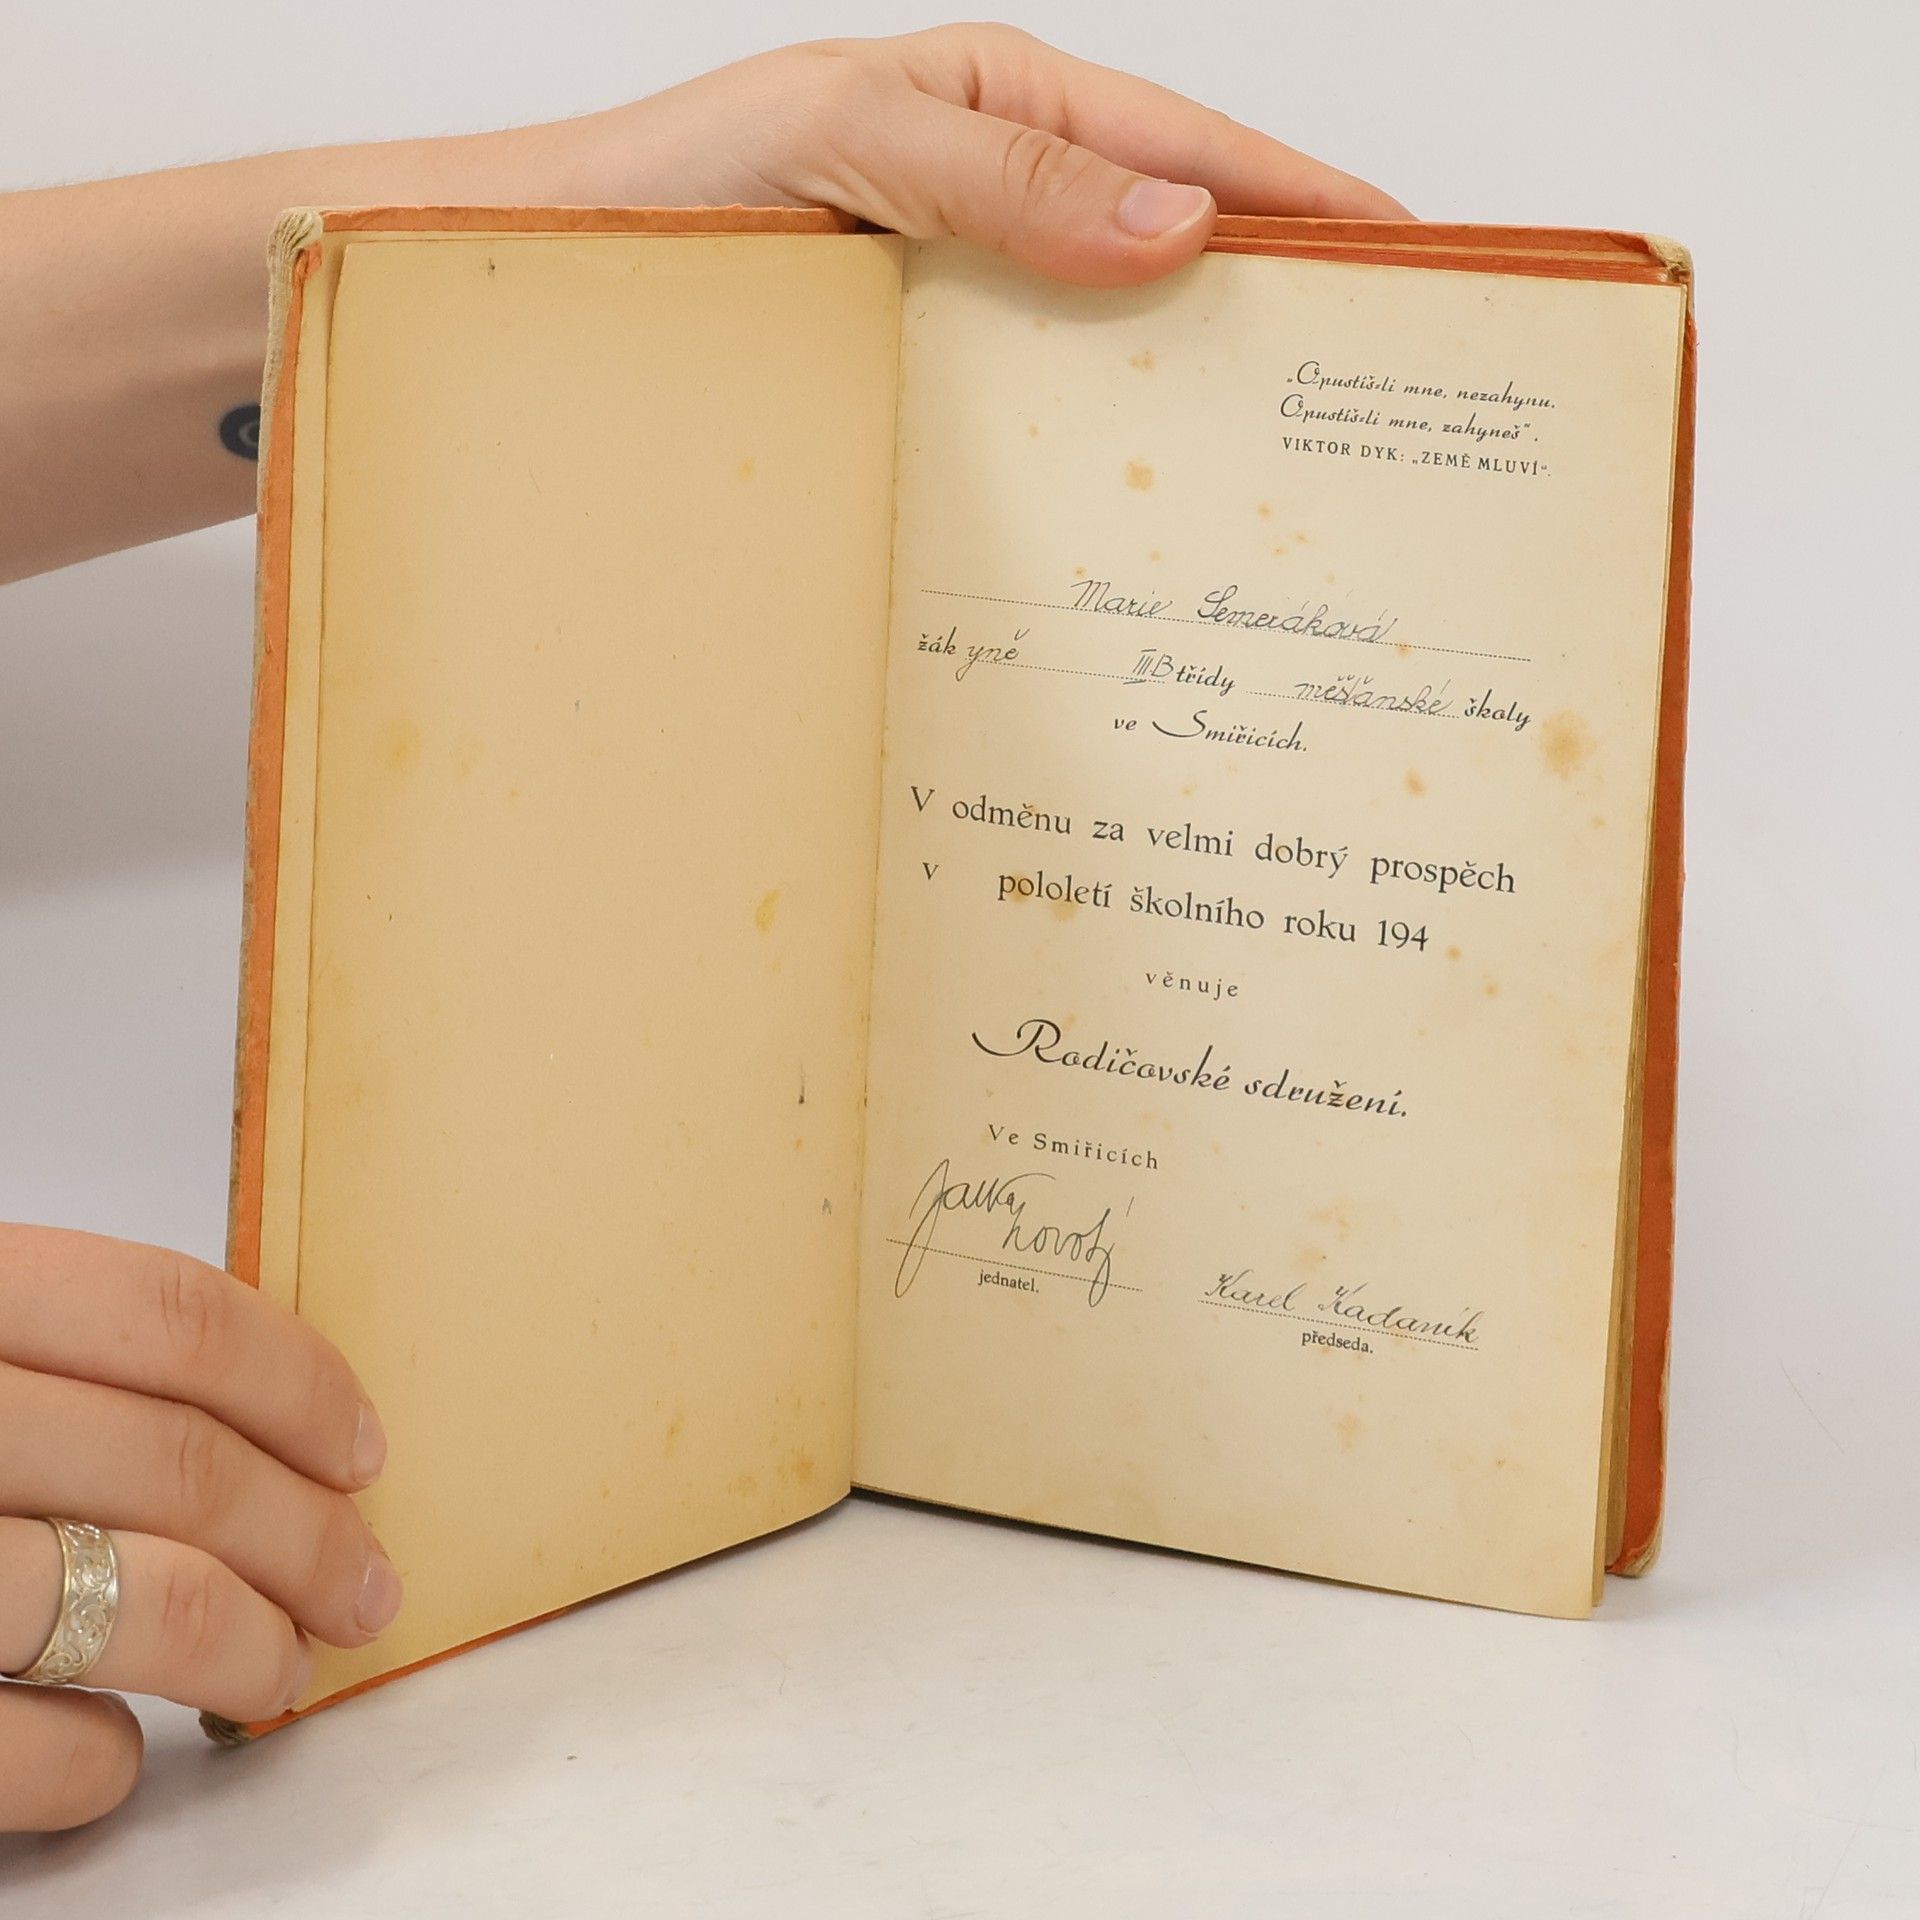 „Opustíš-li mne, nezahynu.
Opustíš-li mne, zahyneš".
VIKTOR DYK: „ZEMĚ MLUVÍ".
Marie Semeráková
žákyně III.B třídy měšťanské školy
ve Smiřicích.
V odměnu za velmi dobrý prospěch
v pololetí školního roku 194
věnuje
Rodičovské sdružení.
Ve Smiřicích
Novotný
jednatel.
Karel Kadaník
předseda.